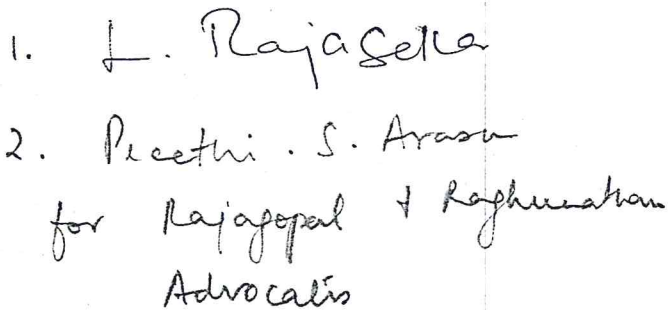 1. L. Rajaseka
2. Preethi. S. Arasu
for Rajagopal & Raghunathan
Advocates